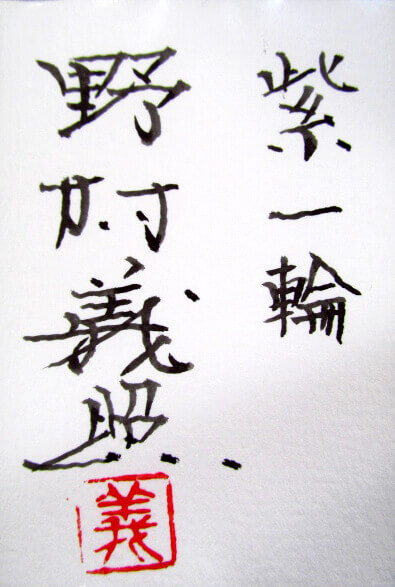 紫一輪
野村義照
義